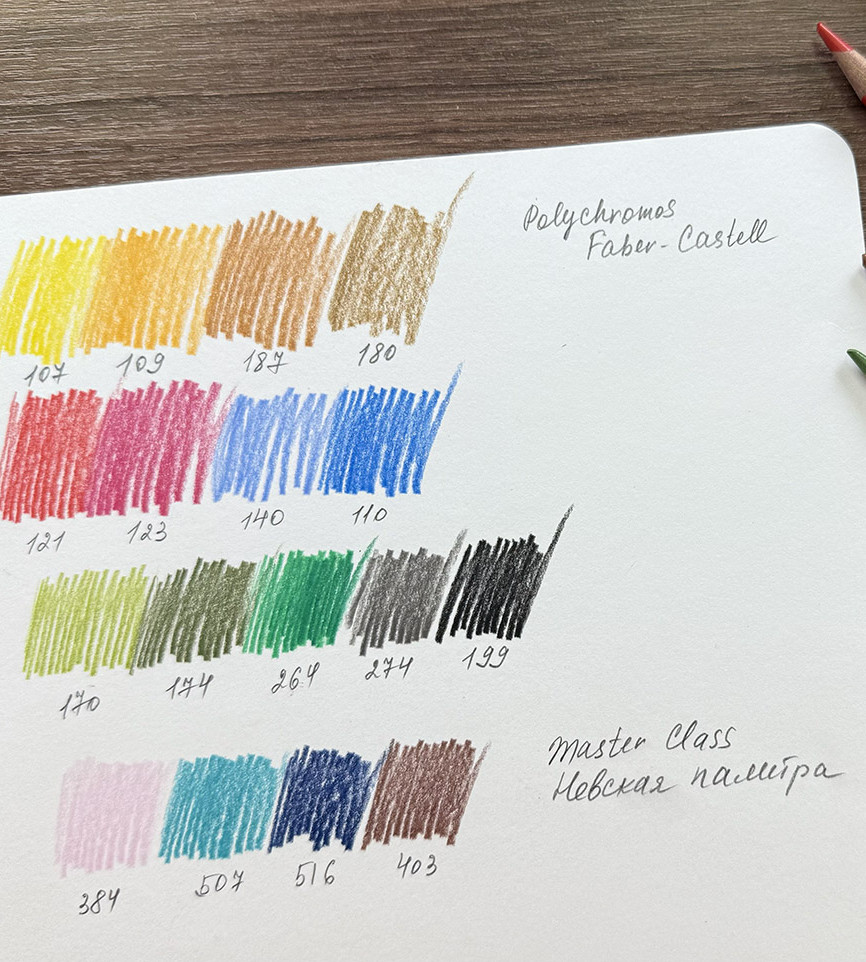 Polychromos
Faber-Castell
107 109 187 180
121 123 140 110
170 174 264 274 199
Master Class
Невская палитра
384 507 516 403